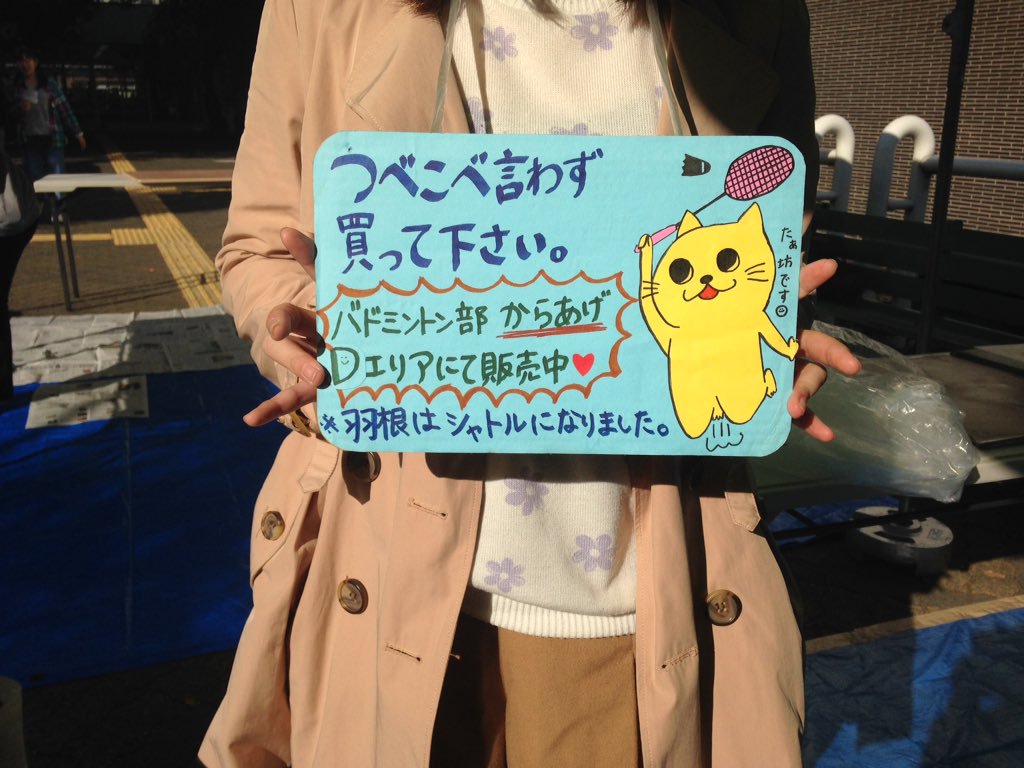 つべこべ言わず
買って下さい。
バドミントン部 からあげ
Dエリアにて販売中♥
※羽根はシャトルになりました。
たぁ坊です☺